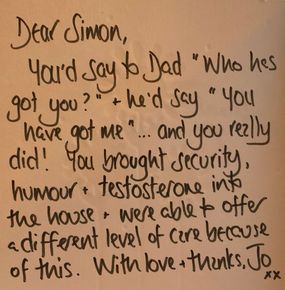 Dear Simon,
You'd say to Dad "Who has
got you?" + he'd say "You
have got me"... and you really
did! You brought security,
humour + testosterone into
the house + were able to offer
a different level of care because
of this. With love + thanks, Jo
xx